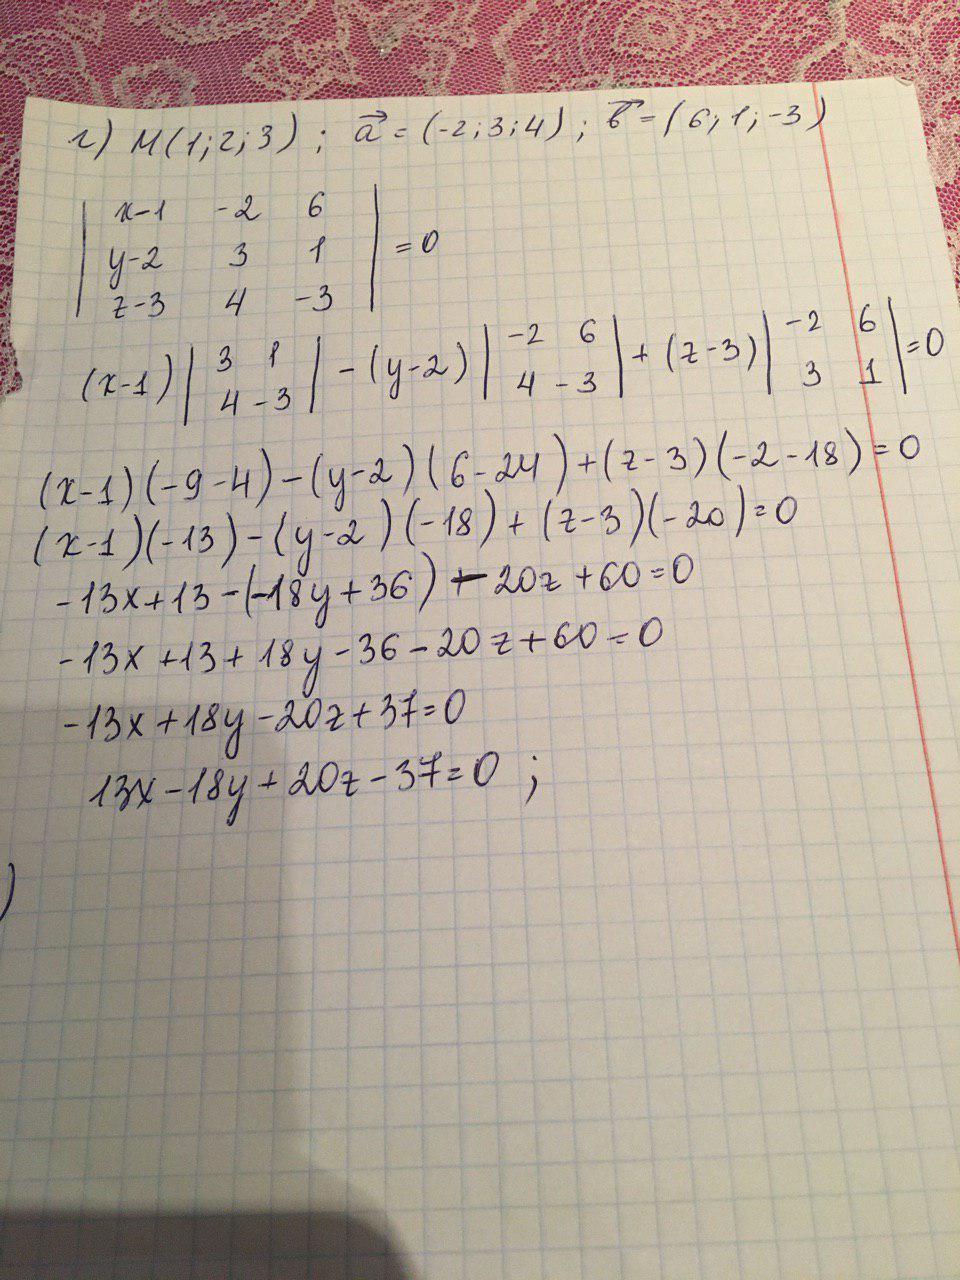 г) M(1;2;3); a⃗ = (-2;3;4); b⃗ = (6;1;-3)
| x-1 -2 6 |
| y-2 3 1 | = 0
| z-3 4 -3 |
(x-1) | 3 1 | - (y-2) | -2 6 | + (z-3) | -2 6 | = 0
| 4 -3 | | 4 -3 | | 3 1 |
(x-1)(-9-4) - (y-2)(6-24) + (z-3)(-2-18) = 0
(x-1)(-13) - (y-2)(-18) + (z-3)(-20) = 0
-13x+13-(-18y+36) - 20z+60=0
-13x+13+18y-36-20z+60=0
-13x+18y-20z+37=0
13x-18y+20z-37=0 ;
)